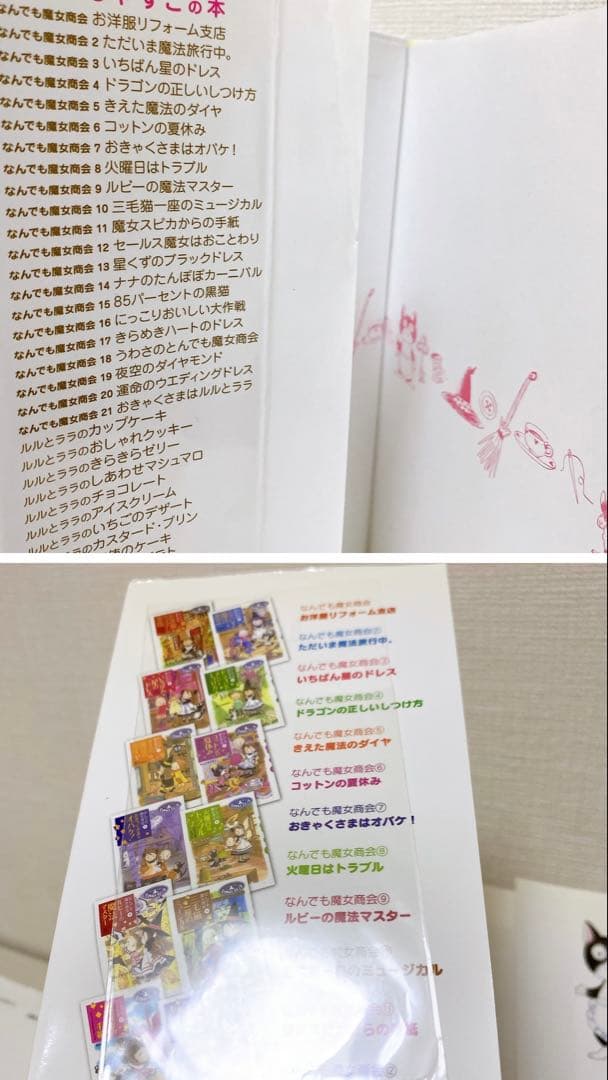 の本
なんでも魔女商会 お洋服リフォーム支店
なんでも魔女商会 2 ただいま魔法旅行中。
なんでも魔女商会 3 いちばん星のドレス
なんでも魔女商会 4 ドラゴンの正しいしつけ方
なんでも魔女商会 5 きえた魔法のダイヤ
なんでも魔女商会 6 コットンの夏休み
なんでも魔女商会 7 おきゃくさまはオバケ!
なんでも魔女商会 8 火曜日はトラブル
なんでも魔女商会 9 ルビーの魔法マスター
なんでも魔女商会 10 三毛猫一座のミュージカル
なんでも魔女商会 11 魔女スピカからの手紙
なんでも魔女商会 12 セールス魔女はおことわり
なんでも魔女商会 13 星くずのブラックドレス
なんでも魔女商会 14 ナナのたんぽぽカーニバル
なんでも魔女商会 15 85パーセントの黒猫
なんでも魔女商会 16 にっこりおいしい大作戦
なんでも魔女商会 17 きらめきハートのドレス
なんでも魔女商会 18 うわさのとんでも魔女商会
なんでも魔女商会 19 夜空のダイヤモンド
なんでも魔女商会 20 運命のウエディングドレス
なんでも魔女商会 21 おきゃくさまはルルとララ
ルルとララのカップケーキ
ルルとララのおしゃれクッキー
ルルとララのきらきらゼリー
ルルとララのしあわせマシュマロ
ルルとララのチョコレート
ルルとララのアイスクリーム
ルルとララのいちごのデザート
ルルとララのカスタード・プリン
のケーキ
なんでも魔女商会
お洋服リフォーム支店
なんでも魔女商会②
ただいま魔法旅行中。
なんでも魔女商会③
いちばん星のドレス
なんでも魔女商会④
ドラゴンの正しいしつけ方
なんでも魔女商会⑤
きえた魔法のダイヤ
なんでも魔女商会⑥
コットンの夏休み
なんでも魔女商会⑦
おきゃくさまはオバケ!
なんでも魔女商会⑧
火曜日はトラブル
なんでも魔女商会⑨
ルビーの魔法マスター
魔女商会
のミュージカル